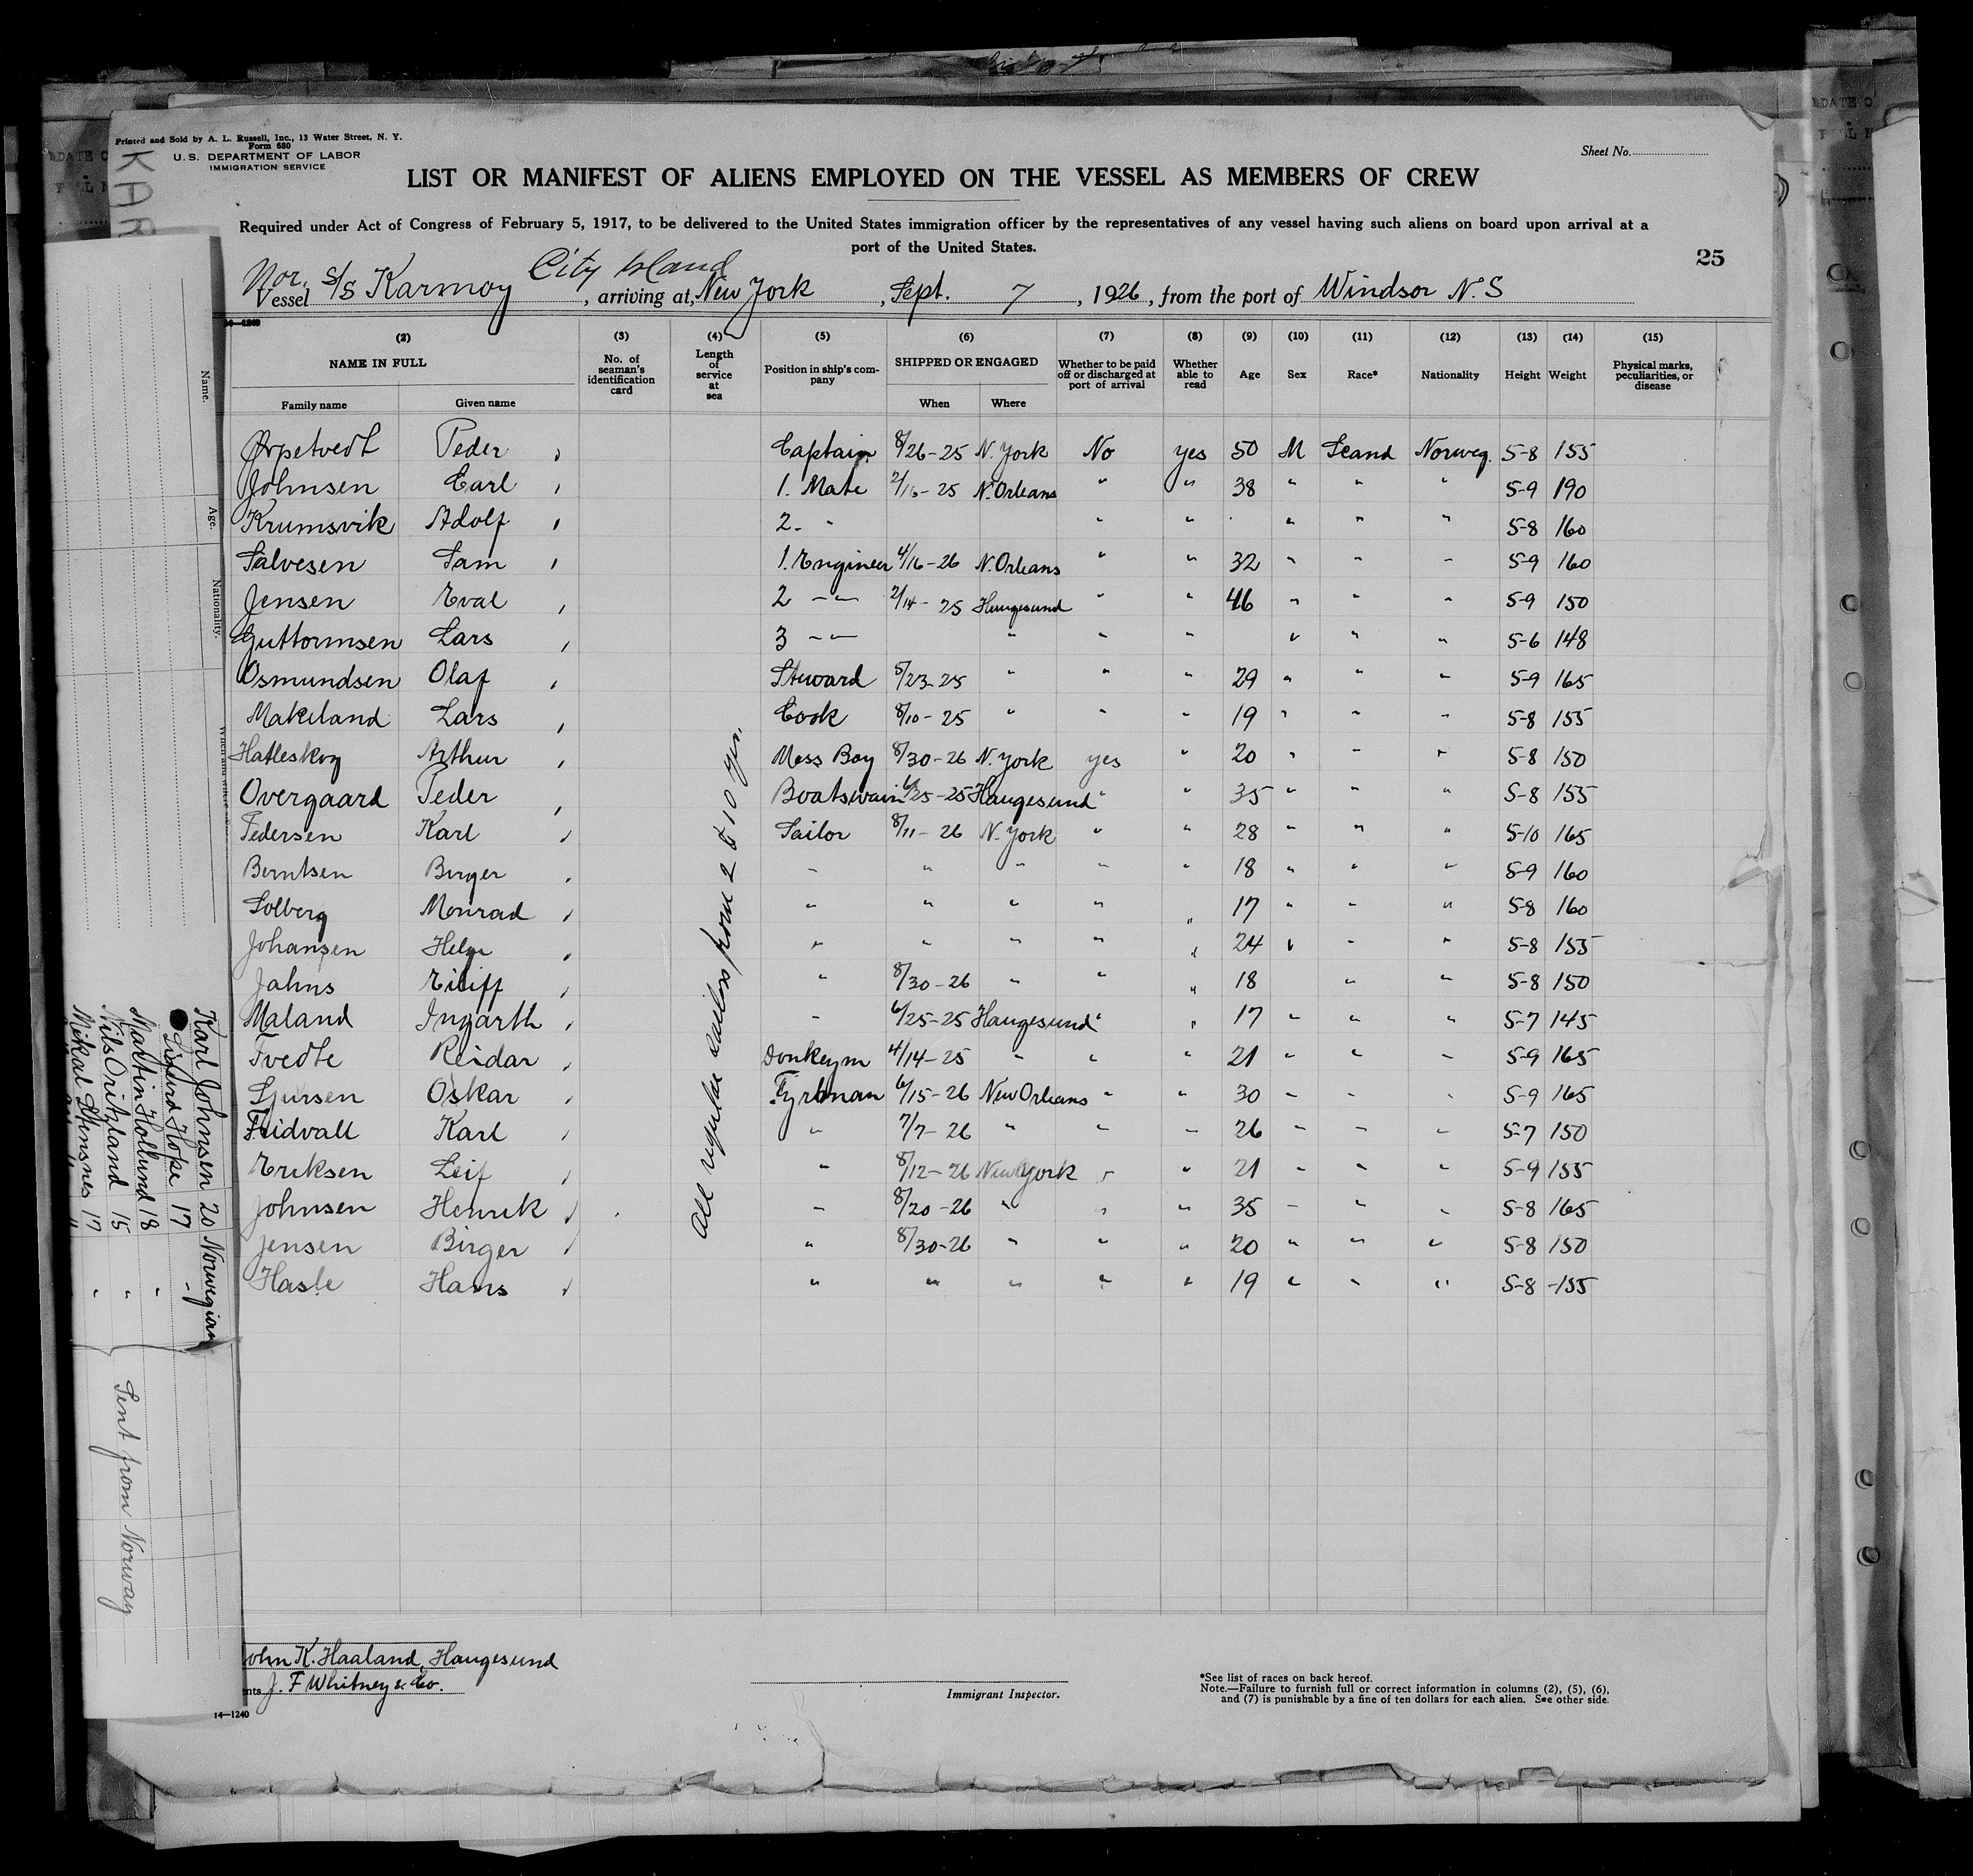 Printed and Sold by A. L. Russell, Inc., 13 Water Street, N. Y.
Form 680
U.S. DEPARTMENT OF LABOR
IMMIGRATION SERVICE
Sheet No.
LIST OR MANIFEST OF ALIENS EMPLOYED ON THE VESSEL AS MEMBERS OF CREW
Required under Act of Congress of February 5, 1917, to be delivered to the United States immigration officer by the representatives of any vessel having such aliens on board upon arrival at a
port of the United States.
25
Nor. City Island
Vessel S/S Karmoy, arriving at, New York, Sept. 7, 1926, from the port of Windsor N.S
(2) (3) (4) (5) (6) (7) (8) (9) (10) (11) (12) (13) (14) (15)
NAME IN FULL No. of seaman's identification card Length of service at sea Position in ship's company SHIPPED OR ENGAGED Whether to be paid off or discharged at port of arrival Whether able to read Age Sex Race* Nationality Height Weight Physical marks, peculiarities, or disease
Family name Given name When Where
Ørpetvedt Peder Captain 8/26-25 N. York No yes 50 M Scand Norweg. 5-8 155
Johnsen Carl 1. Mate 2/16-25 N. Orleans " " 38 " " " 5-9 190
Krumsvik Adolf 2. " " " " " " 5-8 160
Salvesen Sam 1. Engineer 4/16-26 N. Orleans " " 32 " " " 5-9 160
Jensen Eval 2 -"- 2/14-25 Haugesund " " 46 " " " 5-9 150
Guttormsen Lars 3 -"- " " " " " " 5-6 148
Osmundsen Olaf Stuward 8/23-25 " " " 29 " " " 5-9 165
Makeland Lars Cook 8/10-25 " " " 19 " " " 5-8 155
Hatleskog Arthur Mess Boy 8/30-26 N. York yes " 20 " " " 5-8 150
Overgaard Peder Boatswain 6/25-25 Haugesund " " 35 " " " 5-8 155
Pedersen Karl Sailor 8/11-26 N. York " " 28 " " " 5-10 165
Berntsen Birger " " " " " 18 " " " 5-9 160
Solberg Monrad " " " " " 17 " " " 5-8 160
Johansen Helge " " " " " 24 " " " 5-8 155
Jahns " 8/30-26 " " " 18 " " 5-8 150
Maland Ingarth " 6/25-25 Haugesund " " 17 " " " 5-7 145
Tvedte Reidar Donkeym 4/14-25 " " " 21 " " " 5-9 165
Oskar Fyrbman 6/15-26 New Orleans " " 30 " " " 5-9 165
Karl " 7/7-26 " " " 26 " " " 5-7 150
Eriksen Leif " 8/12-26 New York " " 21 " " " 5-9 155
Johnsen Henrik " 8/20-26 " " " 35 " " " 5-8 165
Jensen Birger " 8/30-26 " " " 20 " " " 5-8 150
Hasle Hans " " " " " 19 " " " 5-8 155
All regular sailors from 2 to 10 yrs.
Name.
Age.
Nationality.
Karl Johnsen 20 Norwegian
Sigurd Hope 17 "
Martin Hollund 18 "
Nils 15 "
Mikal Stensnes 17 "
Sent from Norway
KAR
ohn K. Haaland, Haugesund
nts J. F Whitney & Co.
14—1240
Immigrant Inspector.
*See list of races on back hereof.
Note.—Failure to furnish full or correct information in columns (2), (5), (6),
and (7) is punishable by a fine of ten dollars for each alien. See other side.